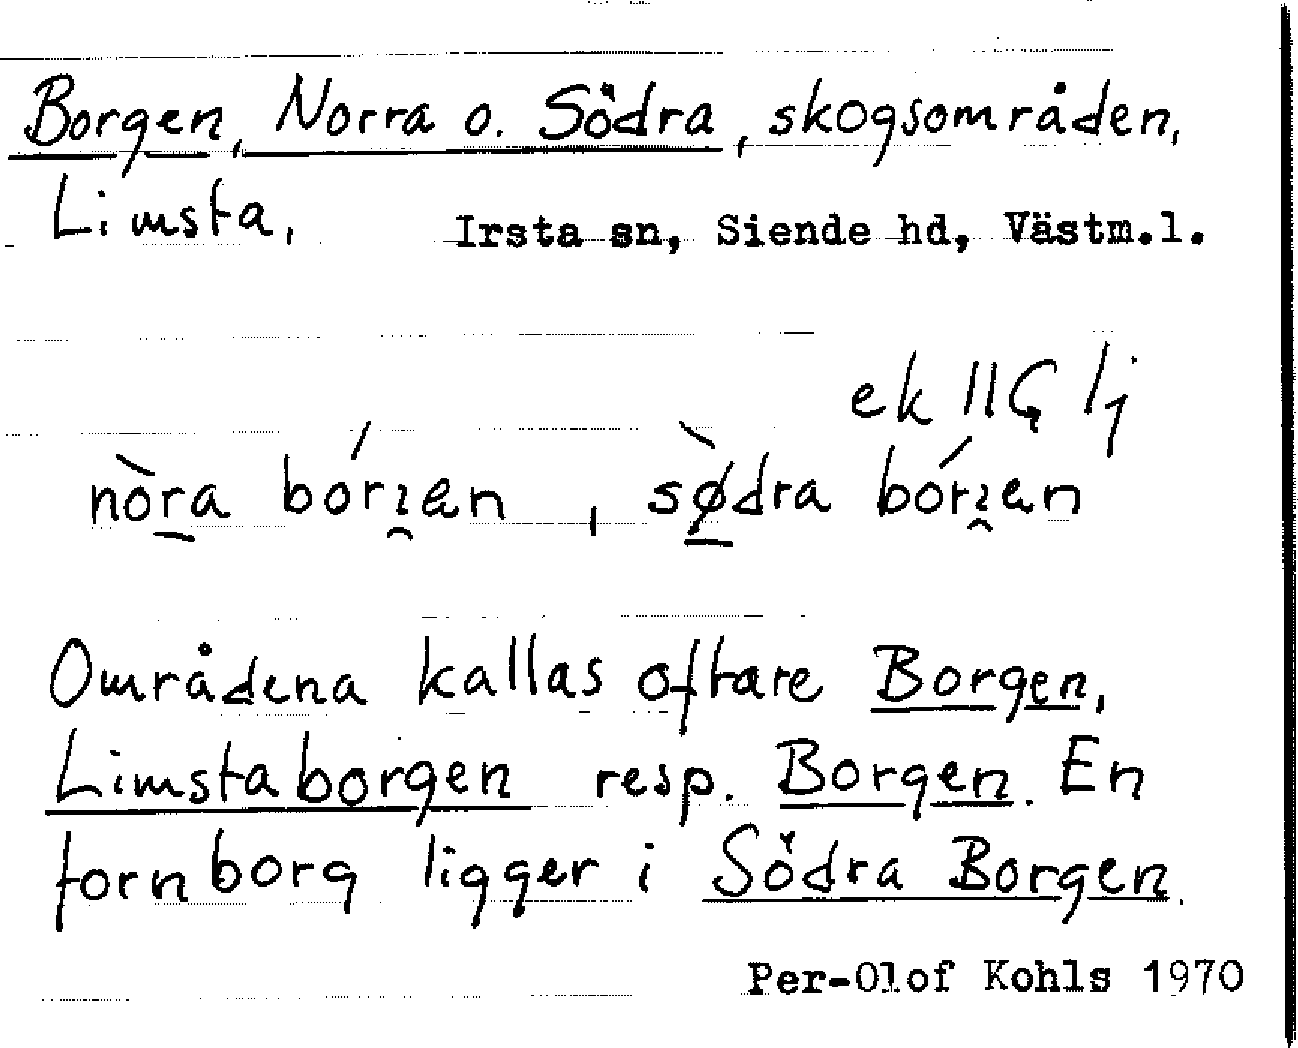 Borgen, Norra o. Södra, skogsområden,
Limsta, Irsta sn, Siende hd, Västm.l.
ek 11G 1j
nòra bórɿen, sø̀dra bórɿen
Områdena kallas oftare Borgen,
Limstaborgen resp. Borgen. En
fornborg ligger i Södra Borgen.
Per-Olof Kohls 1970